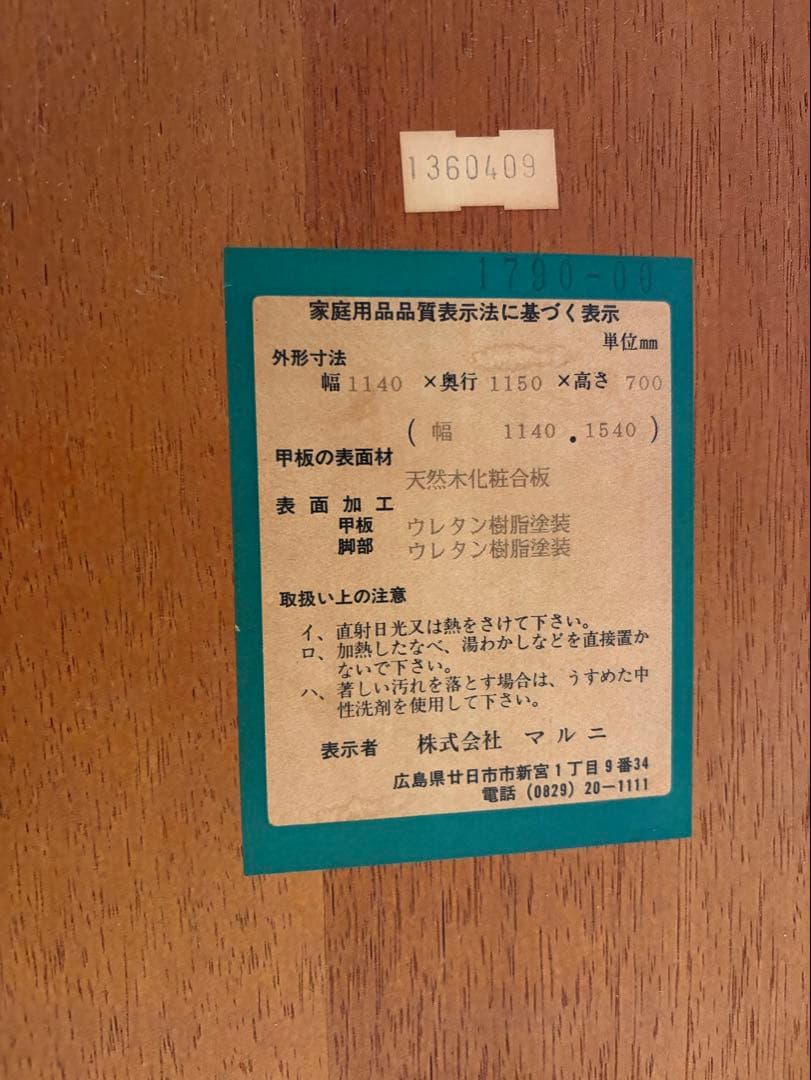 1360409
1790-00
家庭用品品質表示法に基づく表示
単位mm
外形寸法
幅1140 ×奥行 1150 ×高さ 700
(幅 1140.1540)
甲板の表面材
天然木化粧合板
表面加工
甲板 ウレタン樹脂塗装
脚部 ウレタン樹脂塗装
取扱い上の注意
イ、直射日光又は熱をさけて下さい。
ロ、加熱したなべ、湯わかしなどを直接置か
ないで下さい。
ハ、著しい汚れを落とす場合は、うすめた中
性洗剤を使用して下さい。
表示者 株式会社 マルニ
広島県廿日市市新宮1丁目9番34
電話 (0829) 20-1111